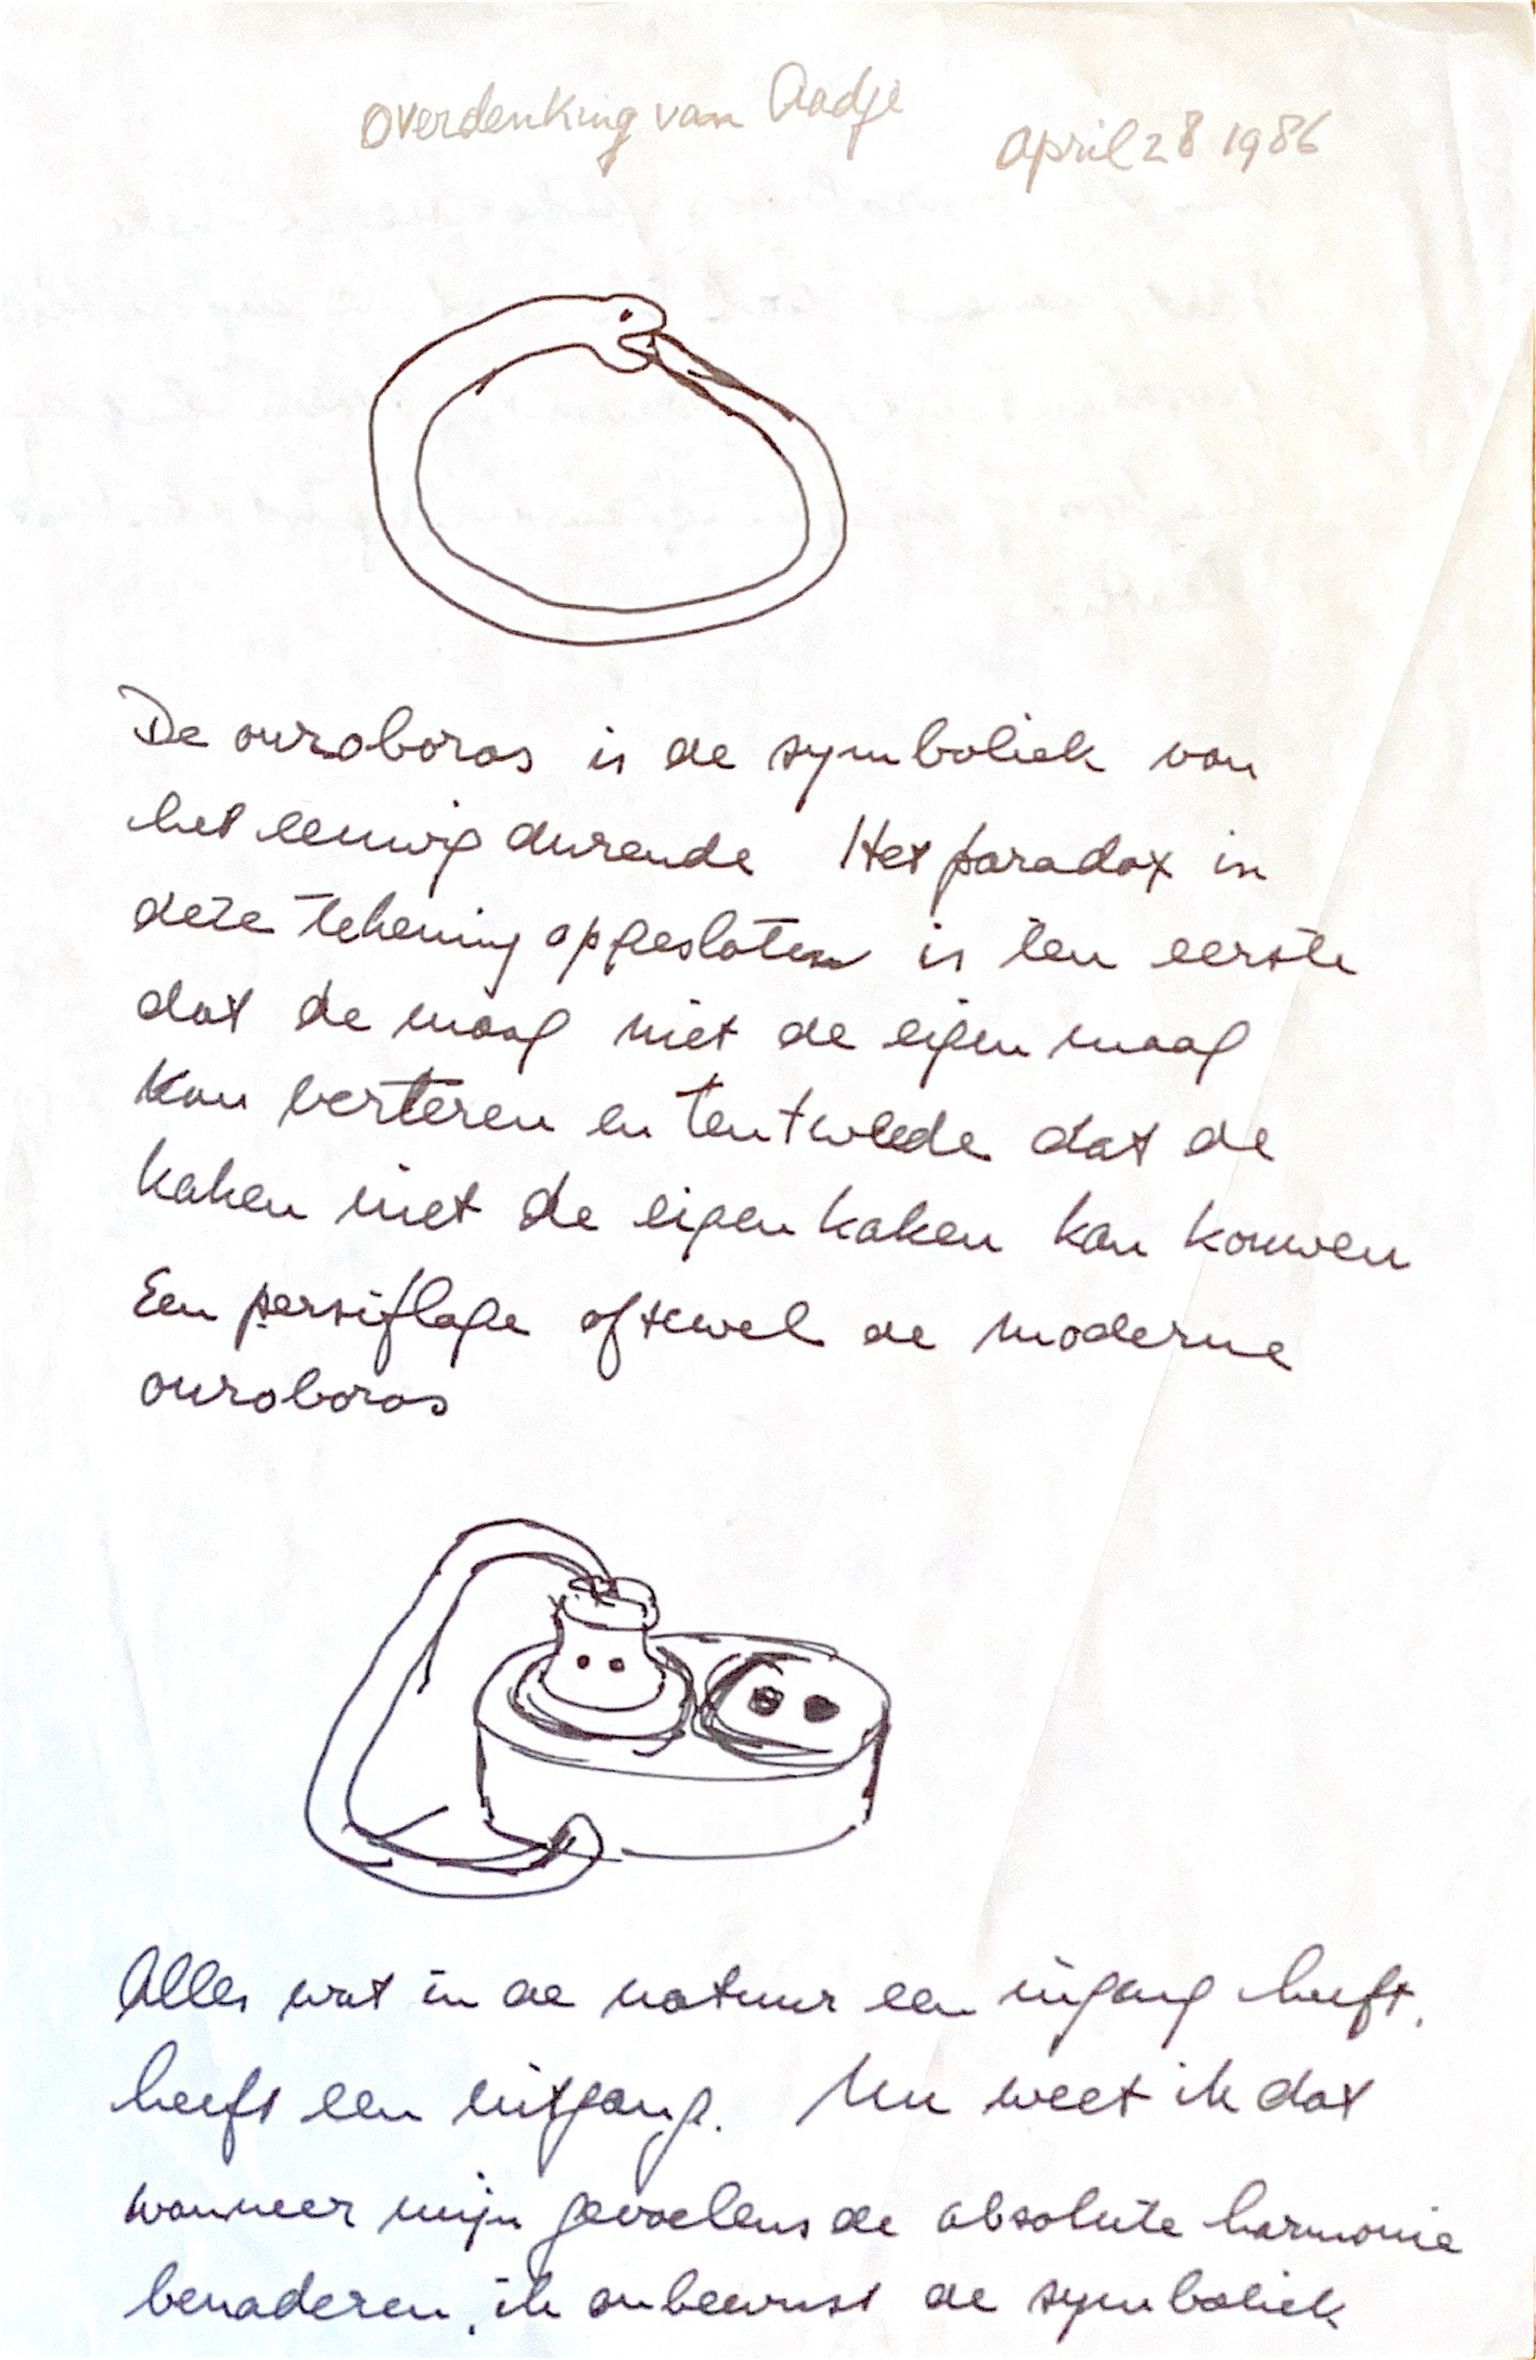 overdenking van Aadje
april 28 1986
De ouroboros is de symboliek van
het eeuwig durende Het paradox in
deze tekening opgesloten is ten eerste
dat de maag niet de eigen maag
kan verteren en ten tweede dat de
kaken niet de eigen kaken kan kouwen
Een persiflage oftewel de moderne
ouroboros
Alles wat in de natuur een ingang heeft,
heeft een uitgang. Nu weet ik dat
wanneer mijn gevoelens de absolute harmonie
benaderen, ik onbewust de symboliek